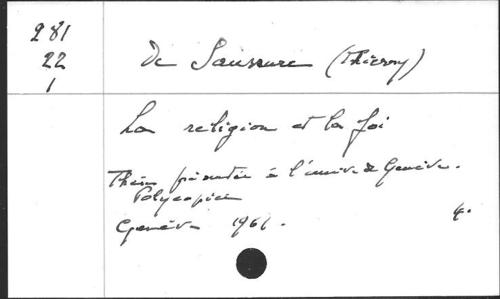 281
22
1
De Saussure (Thierry)
La religion et la foi
Thèse présentée à l'univ. de Genève.
Polycopiée
Genève 1961.
4.